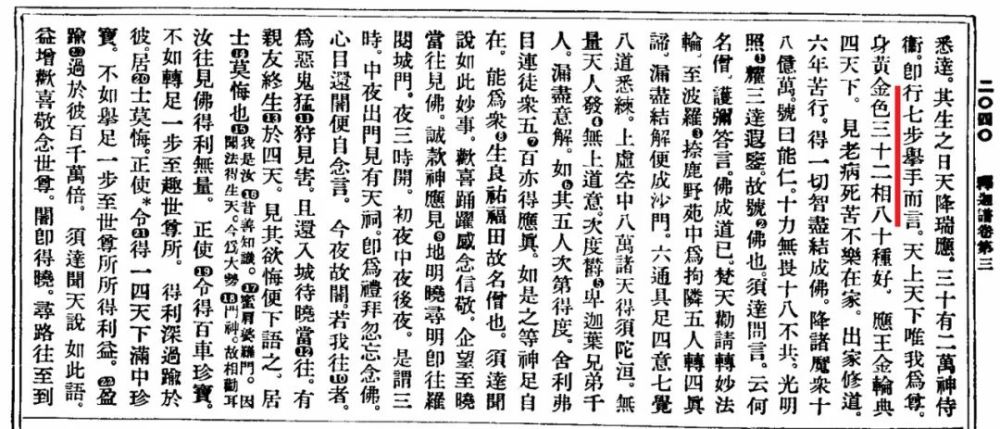 二〇四〇　釋迦譜卷第三
悉達。其生之日天降瑞應。三十有二萬神侍
衞。卽行七步擧手而言。天上天下唯我爲尊。
身黃金色三十二相八十種好。應王金輪典
四天下。見老病死苦不樂在家。出家修道。
六年苦行。得一切智盡結成佛。降諸魔衆十
八億萬。號曰能仁。十力無畏十八不共。光明
照❶耀三達遐鑒。故號❷佛也。須達問言。云何
名僧。護彌答言。佛成道已。梵天勸請轉妙法
輪。至波羅❸捺鹿野苑中爲拘隣五人轉四眞
諦。漏盡結解便成沙門。六通具足四意七覺
八道悉練。上虛空中八萬諸天得須陀洹。無
量天人發❹無上道意。次度欝❺卑迦葉兄弟千
人。漏盡意解。如❻其五人次第得度。舍利弗
目連徒衆五❼百亦得應眞。如是之等神足自
在。能爲衆❽生良祐福田故名僧也。須達聞
說如此妙事。歡喜踊躍感念信敬。企望至曉
當往見佛。誠款神應見❾地明曉尋明卽往羅
閱城門。夜三時開。初夜中夜後夜。是謂三
時。中夜出門見有天祠。卽爲禮拜忽忘念佛。
心目還闇便自念言。今夜故闇。若我往❿者。
爲惡鬼猛⓫狩見害。且還入城待曉當⓬往。有
親友終生⓭於四天。見其欲悔便下語之。居
士⓮莫悔也⓯我是汝⓰昔善知識。⓱蜜肩婆羅門。因
聞法得生天。今爲大勢⓲門神。故相勸耳
汝往見佛得利無量。正使⓳令得百車珍寶。
不如轉足一步至趣世尊所。得利深過踰於
彼。居⓴士莫悔。正使*令㉑得一四天下滿中珍
寶。不如擧足一步至世尊所所得利益。㉒盈
踰㉓過於彼百千萬倍。須達聞天說如此語。
益增歡喜敬念世尊。闇卽得曉。尋路往至到